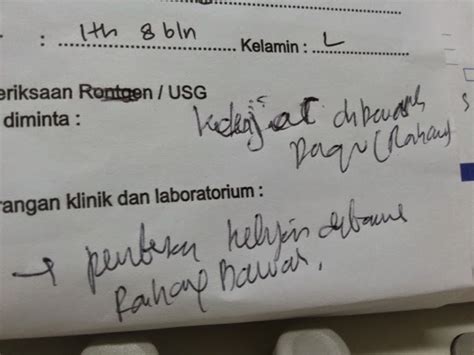 : 1 th 8 bln Kelamin : L
eriksaan Rontgen / USG
diminta : dibawah
Dagu (Rahang)
rangan klinik dan laboratorium :
→ dibawah
Rahang Bawah,